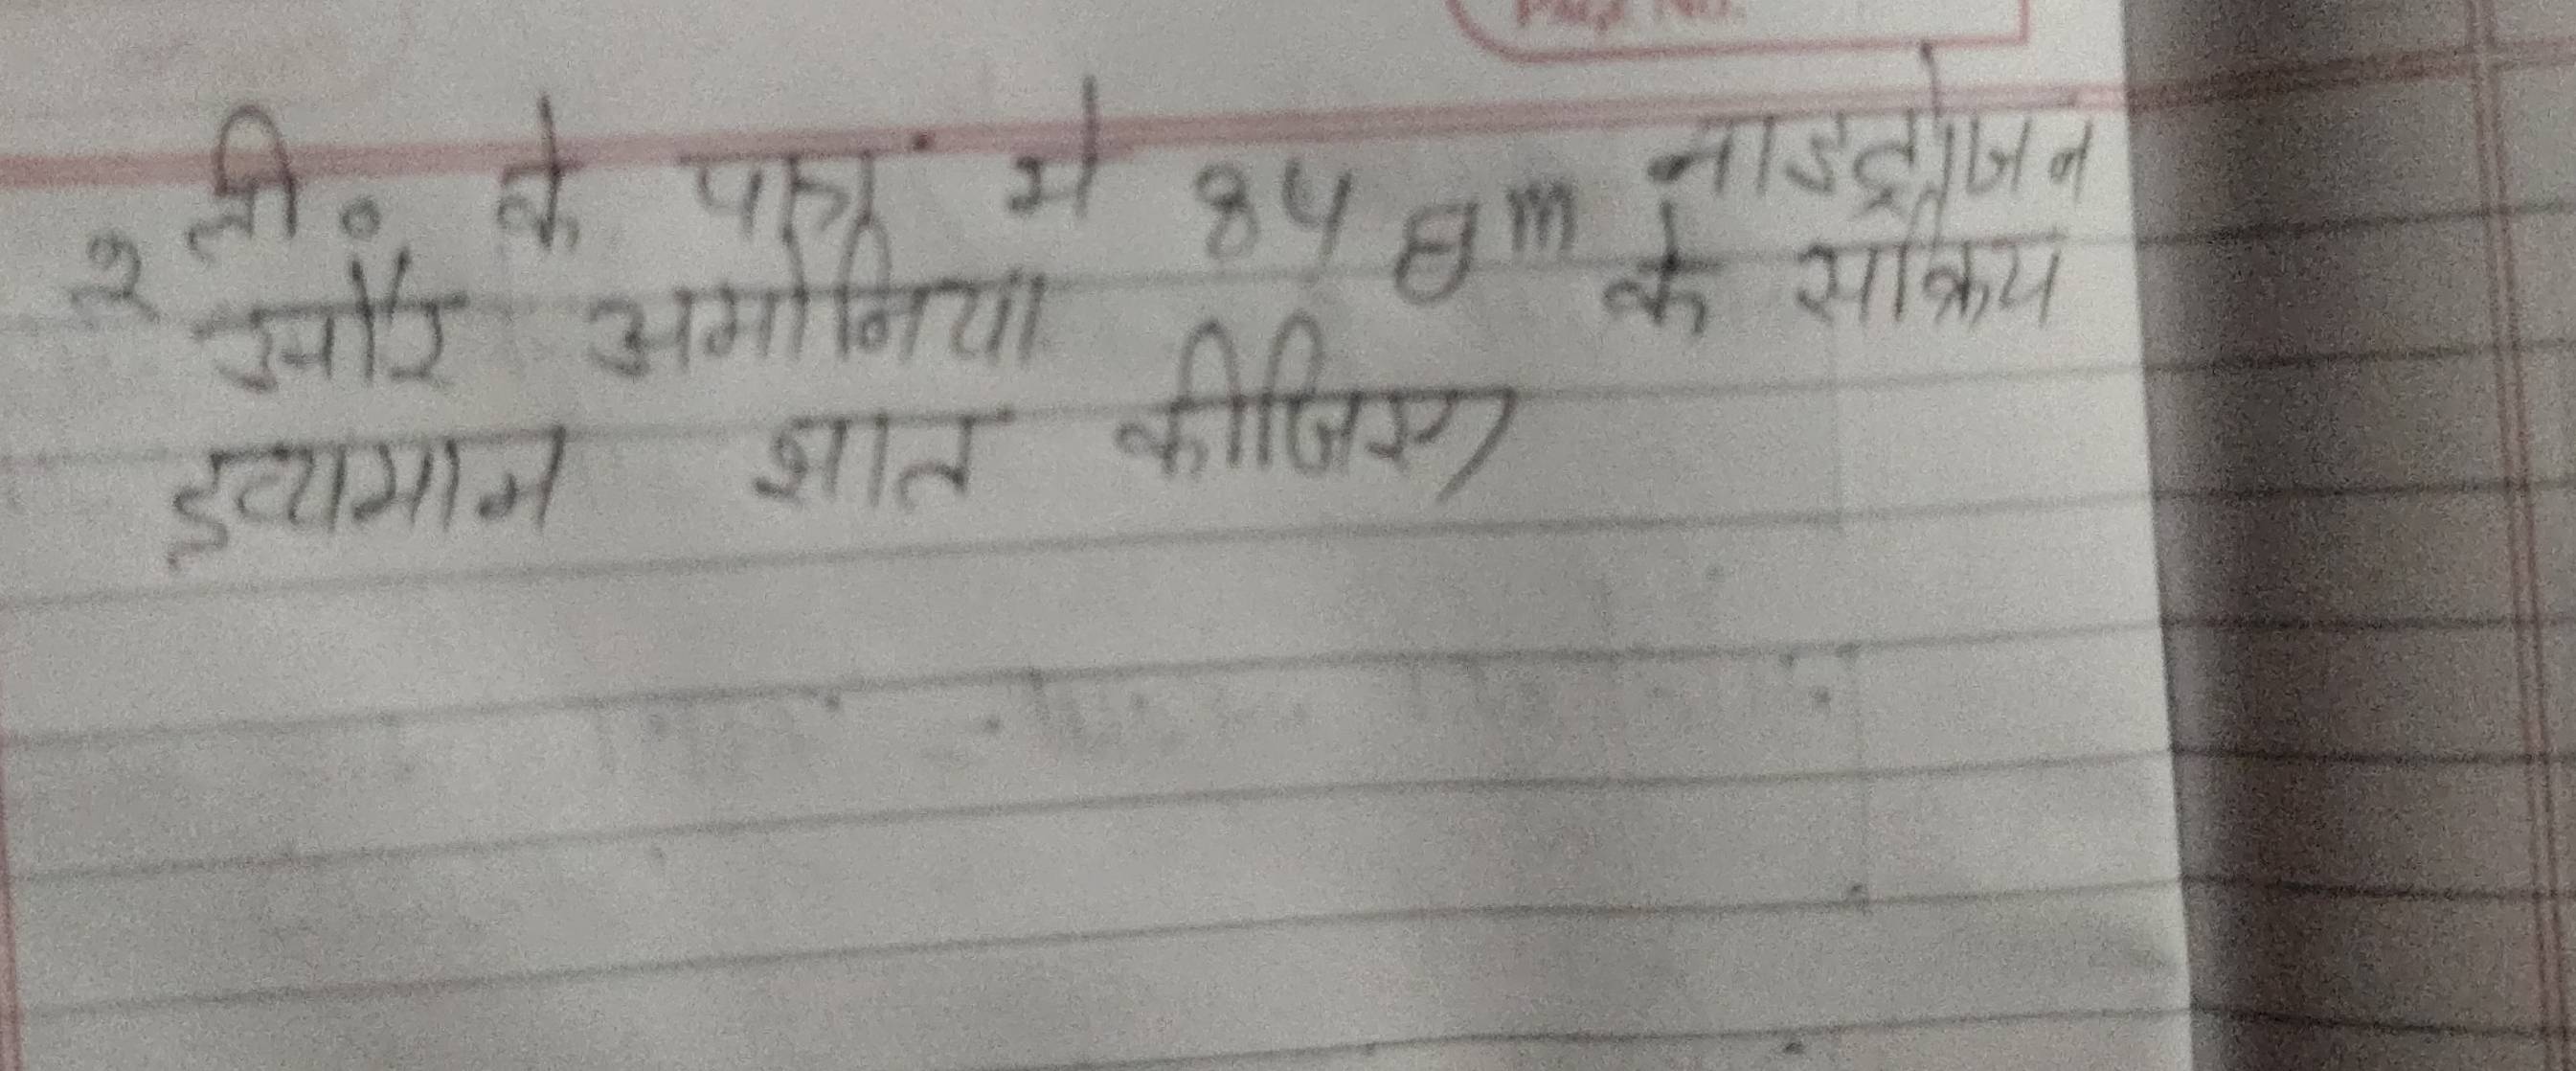 Page No.
२ ली० के पात्र में 84 gm नाइट्रोजन
और अमोनिया के सक्रिय
द्रव्यमान ज्ञात कीजिए